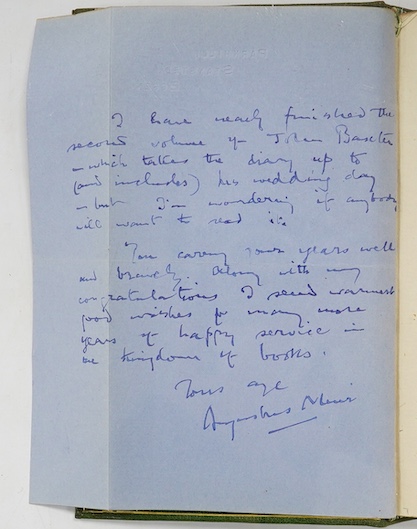 I have nearly finished the
second volume of John Baxter
— which takes the diary up to
(and includes) his wedding day
— but I'm wondering if anybody
will want to read it.
You carry your years well
and bravely. Along with my
congratulations I send warmest
good wishes for many more
years of happy service in
the kingdom of books.
Yours aye
Augustus Muir